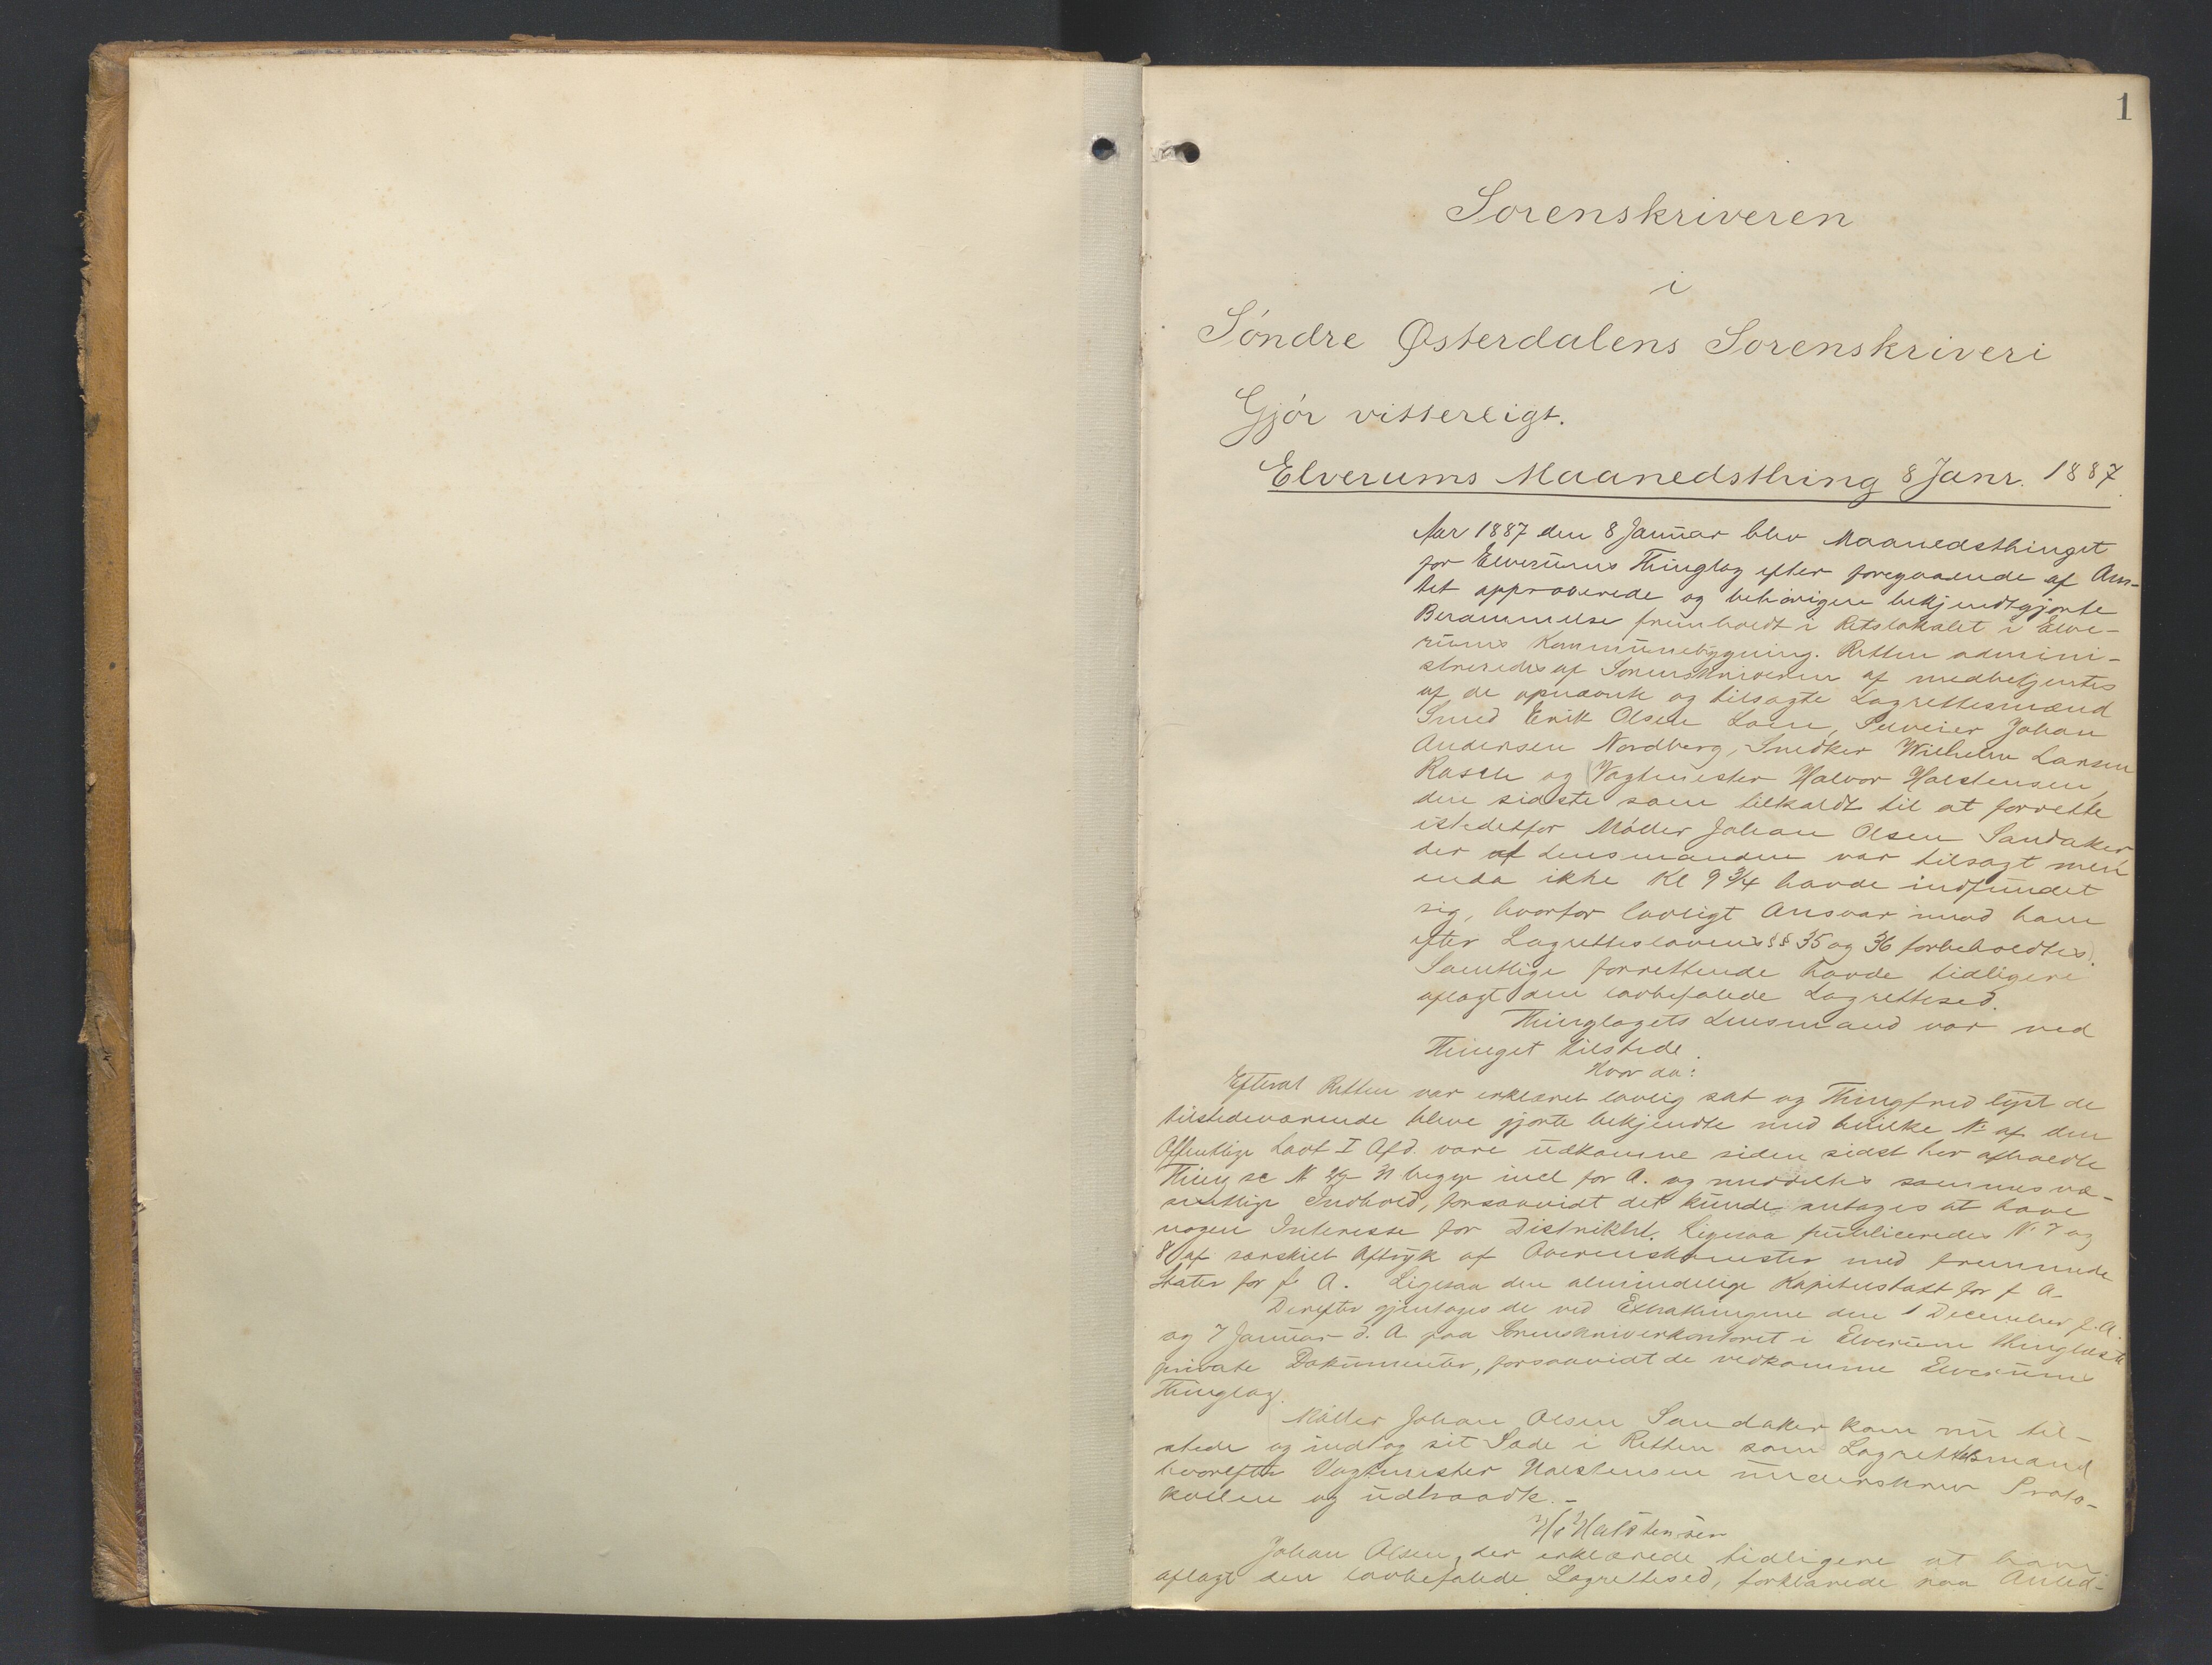 1
Sorenskriveren
i
Söndre Østerdalens Sorenskriveri
Gjör vitterligt.
Elverums Maanedsthing 8 Janr. 1887.
Aar 1887 den 8 Januar blev Maanedsthinget
for Elverums Thinglag efter foregaaende af Am-
tet approberede og behörigen bekjendtgjorte
Berammelse fremholdt i Retslokalet i Elve-
rums Kommunebygning. Retten admini-
streredes af Sorenskriveren af medbetjentes
af de opnævnte og tilsagte Lagrettesmænd
Smed Erik Olsen Loen, Selveier Johan
Andersen Nordberg, Snedker Wilhelm Larsen
Rasch og Vagtmester Halvor Halstensen,
den sidste som tilkaldt til at forrette
istedetfor Möller Johan Olsen Sandaker
der af Lensmanden var tilsagt men
enda ikke Kl 9 3/4 havde indfundet
sig, hvorfor lovligt Ansvar mod ham
efter Lagretteslovens §§ 35 og 36 forbeholdtes.
Samtlige forrettende havde tidligere
aflagt den lovbefalede Lagrettesed.
Thinglagets Lensmand var ved
Thinget tilstede.
Hvor da:
Efterat Retten var erklæret lovlig sat og Thingfred lyst de
tilstedeværende bleve gjorte bekjendte med hvilke No af den
Offentlige Lovt I Afd. vare udkomne siden sidst her afholdte
Thing se N begge incl for A. og meddeltes sammes væ-
sentlige Indhold, forsaavidt det kunde antages at have
nogen Interesse for Distriktet. Ligesaa publiceredes N. 7 og
8 af særskilt Aftryk af Overenskomster med fremmede
Stater for f. A. Ligesaa den almindelige Kapitelstakt for f A.
Derefter gjentoges de ved Extrathingene den 1 December f. A.
og 7 Januar d. A paa Sorenskriverkontoret i Elverum thinglæste
private Dokumenter, forsaavidt de vedkomme Elverums
Thinglag.
Möller Johan Olsen Sandaker kom nu til-
stede og indtog sit Sæde i Retten som Lagrettesmand
hvorefter Vagtmester Halstensen underskrev Proto-
kollen og udtraadte. -
H. Halstensen
Johan Olsen, der erklærede tidligere at have
aflagt den lovbefalede Lagrettesed, forklarede paa Anled-